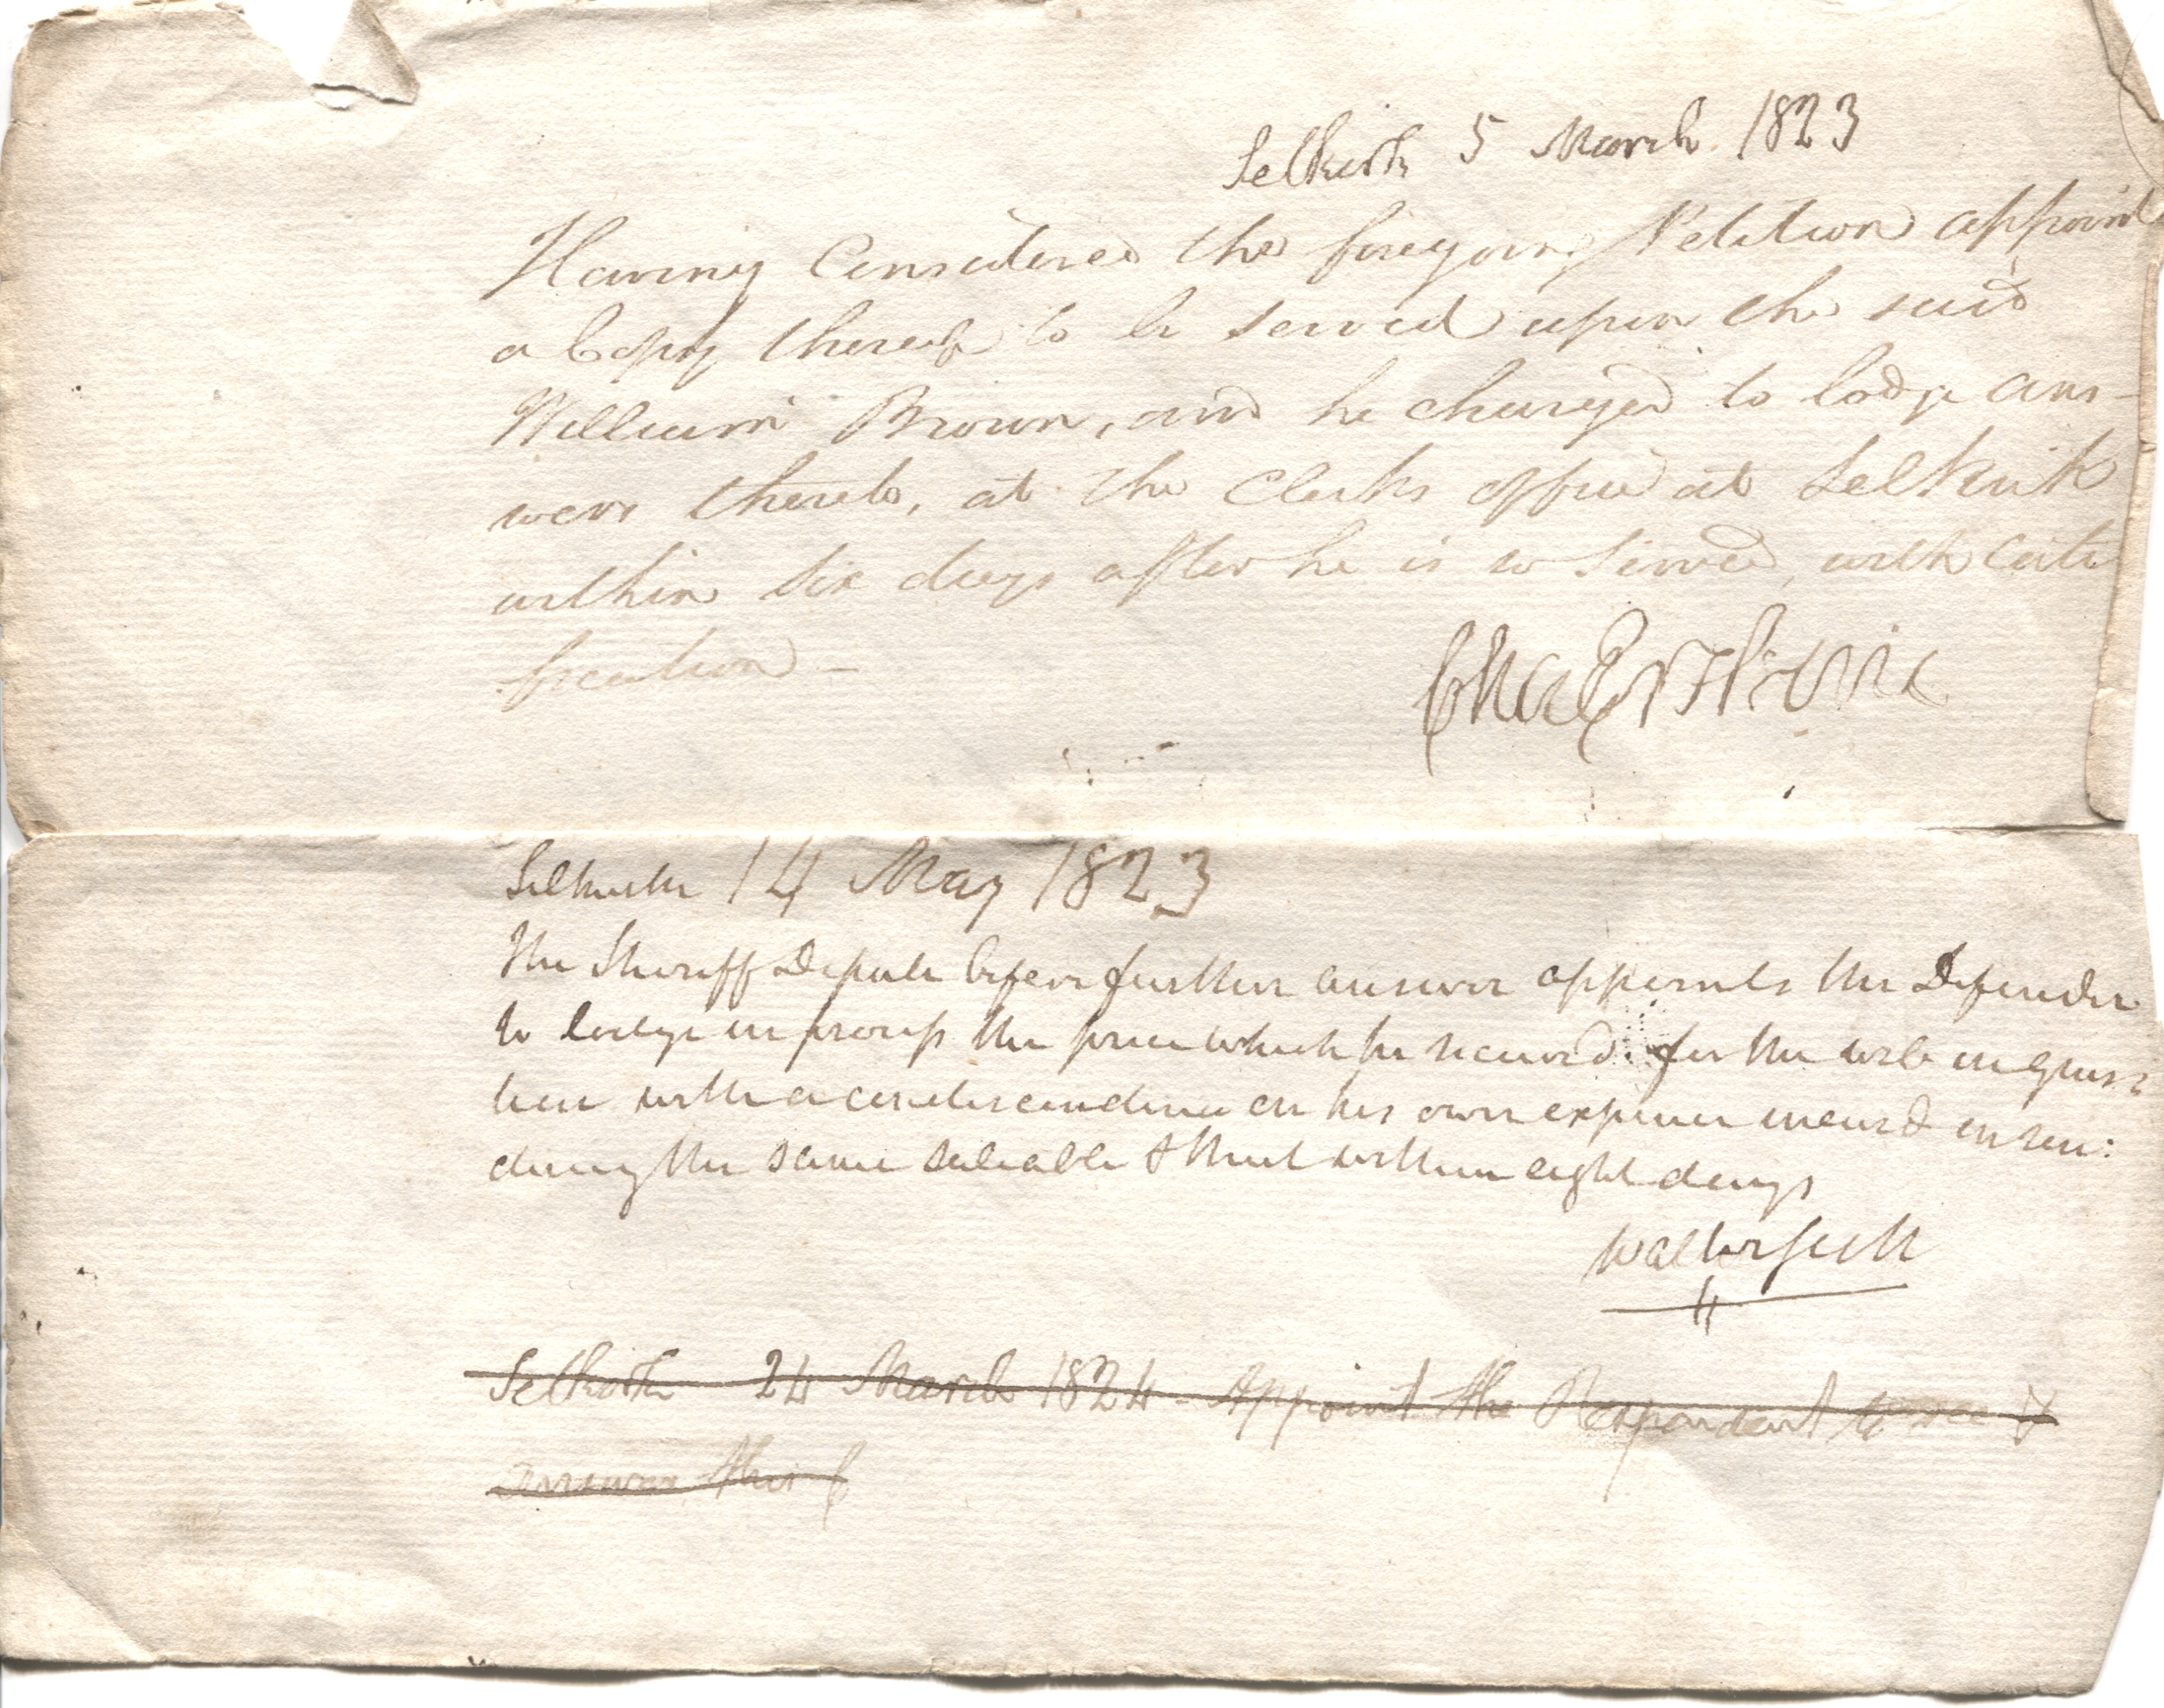 Selkirk 5 March 1823
Having Considered the foregoing Petition appoint
a Copy thereof to be served upon the said
William Brown, and he charged to lodge ans-
wers thereto, at the Clerks office at Selkirk
within six days after he is so served, with certi
fication -
Chas Erskine
Selkirk 14 May 1823
The Sheriff Depute before further answer appoints the Defender
to lodge in process the price which he receivd for the web in ques:
tion with a condescendence on his own expence incurd in ren:
dering the same saleable & that within eight days
Walter Scott
Selkirk 24 March 1824 - Appoint the Respondent to see &
answer this